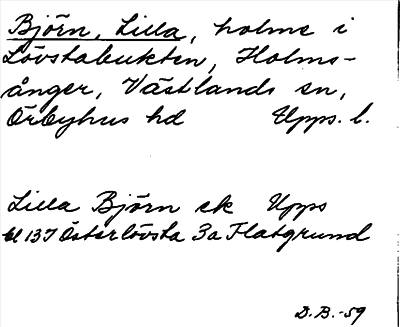 Björn, Lilla, holme i
Lövstabukten, Holms-
ånger, Västlands sn,
Örbyhus hd Upps. l.
Lilla Björn ek Upps
bl 137 Österlövsta 3a Flatgrund
D.B.-59